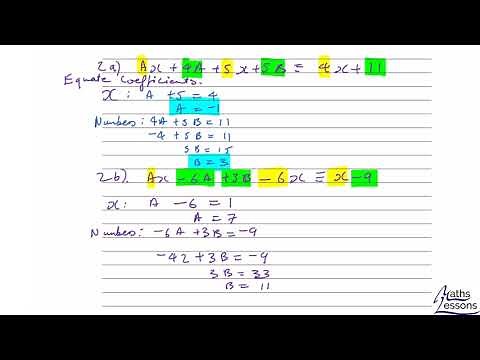 2a) Ax + 4A + 5x + 5B ≡ 4x + 11
Equate Coefficients.
x : A + 5 = 4
A = -1
Numbers: 4A + 5B = 11
-4 + 5B = 11
5B = 15
B = 3
2b). Ax - 6A + 3B - 6x ≡ x - 9
x: A - 6 = 1
A = 7
Numbers: -6A + 3B = -9
-42 + 3B = -9
3B = 33
B = 11
Maths
Lessons